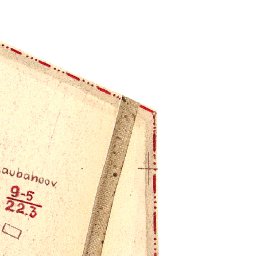 aubanoov
9-5
22.3